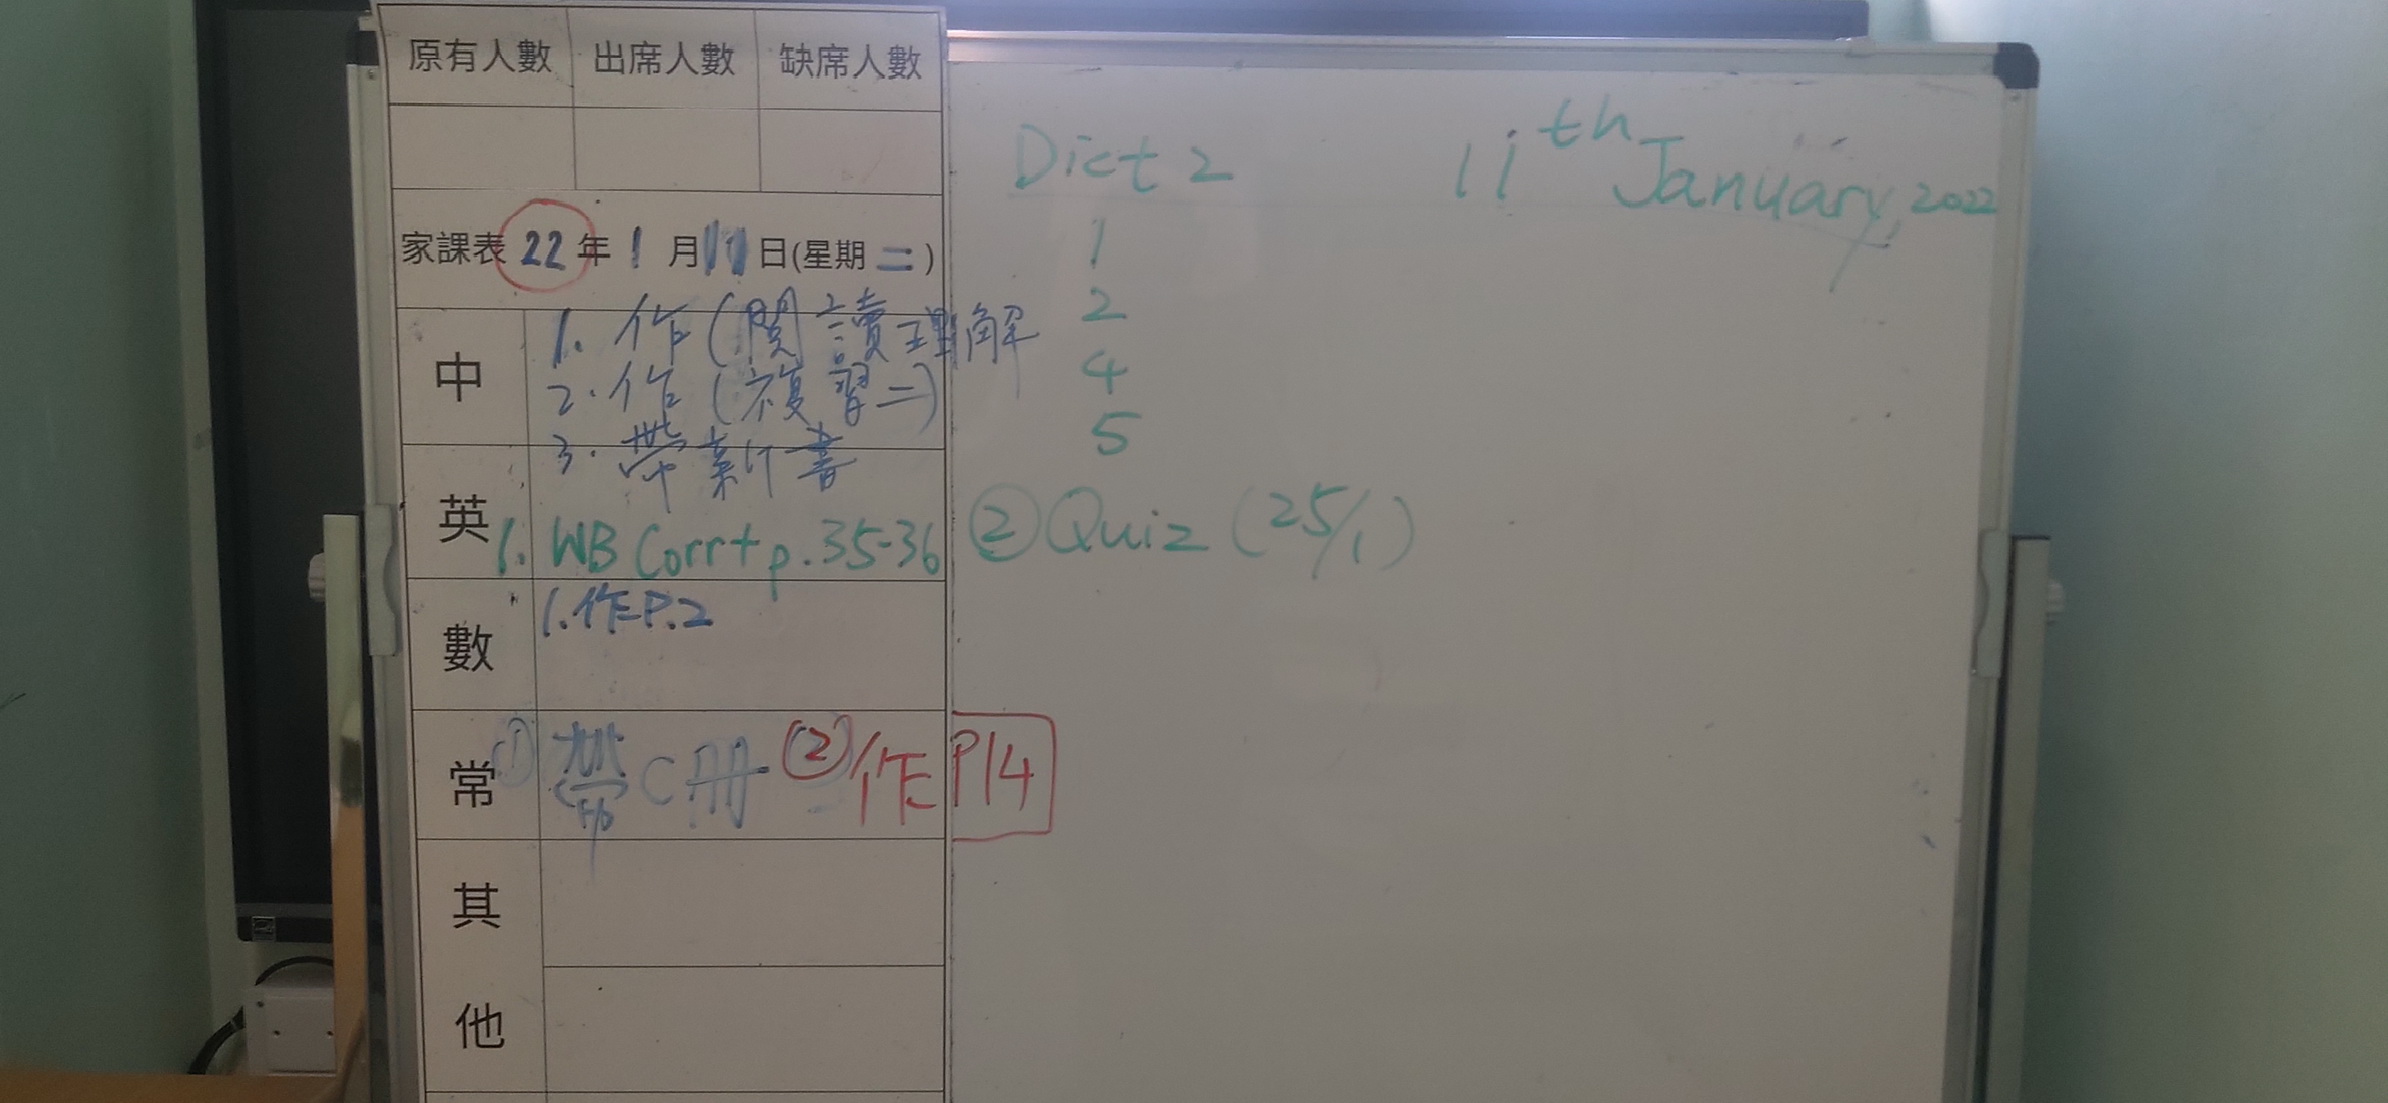 原有人數 出席人數 缺席人數
家課表 22 年 1 月 11 日(星期 二 )
中
1. 作(閱讀理解
2. 作(複習二)
3. 帶新書
英
1. WB Corr+ p. 35-36 ② Quiz (25/1)
數
1. 作P.2
常
① 帶C冊 ② 作 P14
其
他
Dict 2 11th January, 2022
1
2
4
5